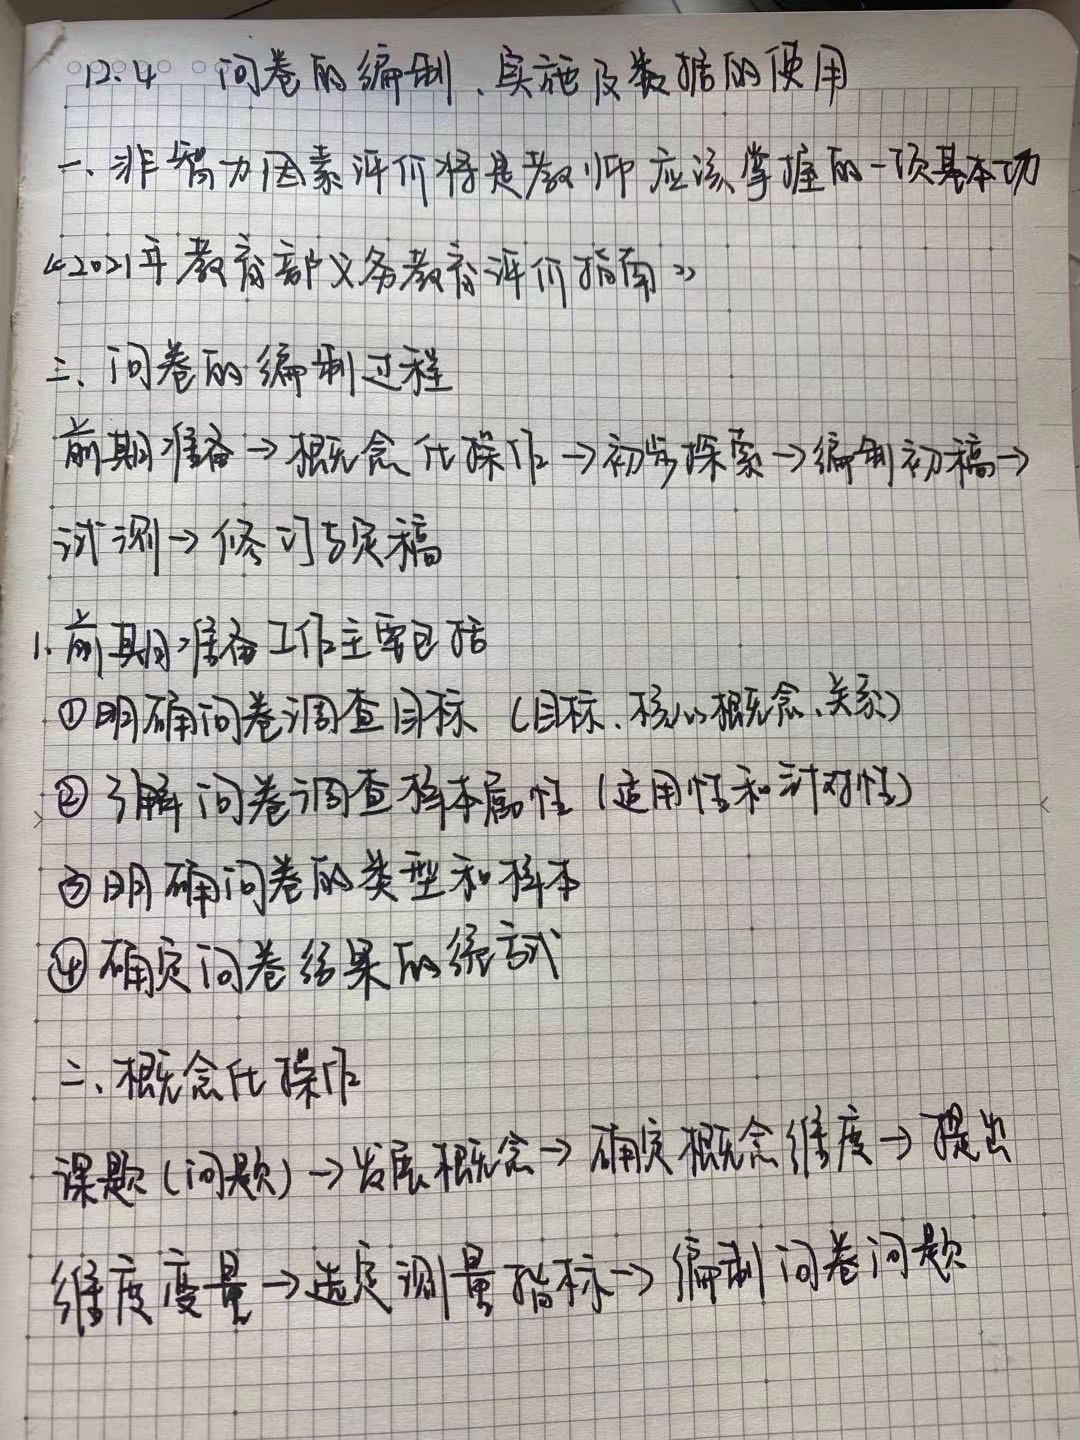 12.4 问卷的编制、实施及数据的使用
一、非智力因素评价将是教师应该掌握的一项基本功
《2021年教育部义务教育评价指南》
三、问卷的编制过程
前期准备→概念化操作→初步探索→编制初稿→
试测→修订与定稿
1.前期准备工作主要包括
①明确问卷调查目标(目标、核心概念、关系)
②了解问卷调查样本属性(适用性和针对性)
③明确问卷的类型和样本
④确定问卷结果的统方式
二、概念化操作
课题(问题)→发展概念→确定概念维度→提出
维度度量→选定测量指标→编制问卷问题